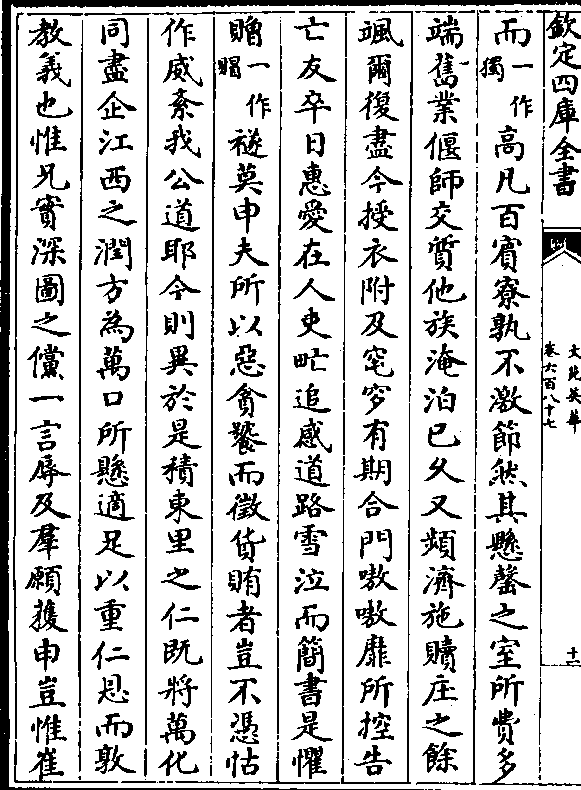 欽定四庫全書
文苑英華
卷六百八十七
十一
而一作獨高凡百賓寮孰不激節然其懸罄之室所費多
端舊業偃師交質他族淹泊已久又頻濟施贖庄之餘
颯爾復盡今授衣附及窀穸有期合門嗷嗷靡所控告
亡友卒日惠愛在人吏甿追感道路雪泣而簡書是懼
贈一作賵禭莫申夫所以惡貪饕而徵貨賄者豈不憑怙
作威紊我公道耶今則異於是積東里之仁既將萬化
同盡企江西之潤方為萬口所懸適足以重仁恩而敦
教義也惟兄實深圖之儻一言辱及羣願獲申豈惟崔